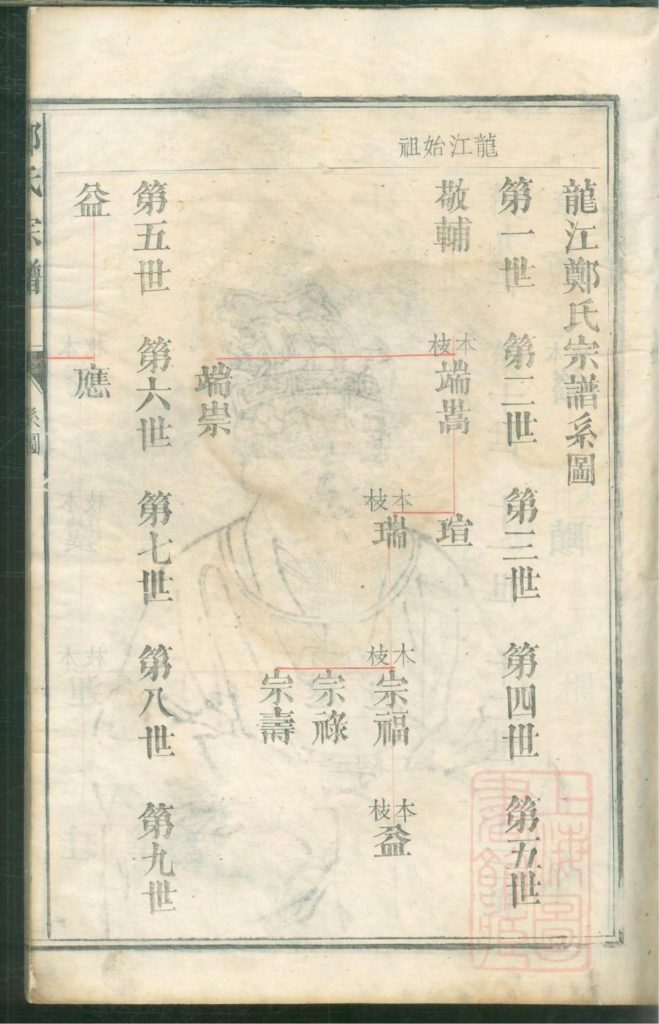 龍江始祖
龍江鄭氏宗譜系圖
第一世 第二世 第三世 第四世 第五世
敬輔
本枝 端嵩
瑄
本枝 瑞
本枝 宗福
本枝 益
宗祿
宗壽
端崇
第五世 第六世 第七世 第八世 第九世
益
應
氏宗譜
系圖
上海圖書館藏